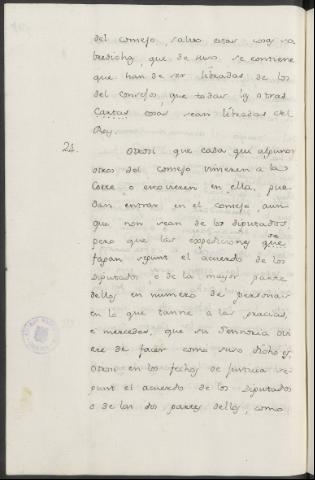 del consejo, salvo estas cosas sa
bredichas, que de suso se contiene
que han de ser libradas de los
del Consejo, que todas las otras
Cartas cosas sean libradas del
Rey.
21. Otrosi que cada que algunos
otros del consejo vinieren a la
Corte o estuvieren en ella, pue
dan entrar en el consejo, aun
que non sean de los diputados,
pero que las expediciones que se
fagan segunt el acuerdo de los
Diputados o de la mayor parte
dellos en numero de personas
en lo que tanne a las gracias,
e mercedes, que su Sennoria ovi
ere de facer como suso dicho es,
Otrosi en los fechos de justicia se
gunt el acuerdo de los Diputados
o de las dos partes dellos, como